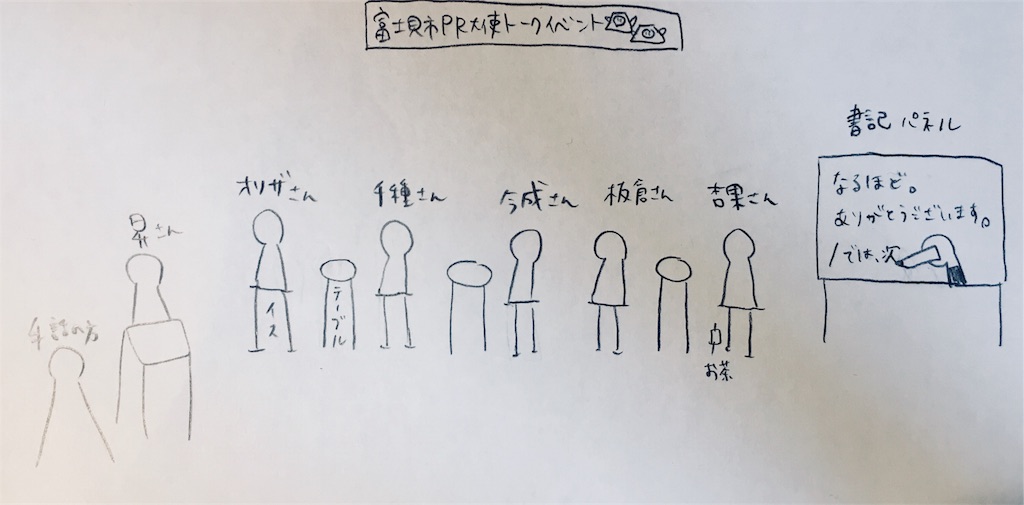 富士見市PR大使トークイベント
書記パネル
なるほど。
ありがとうございます。
/では、次
オリザさん
千種さん
今成さん
板倉さん
杏果さん
昇さん
手話の方
イス
テーブル
お茶